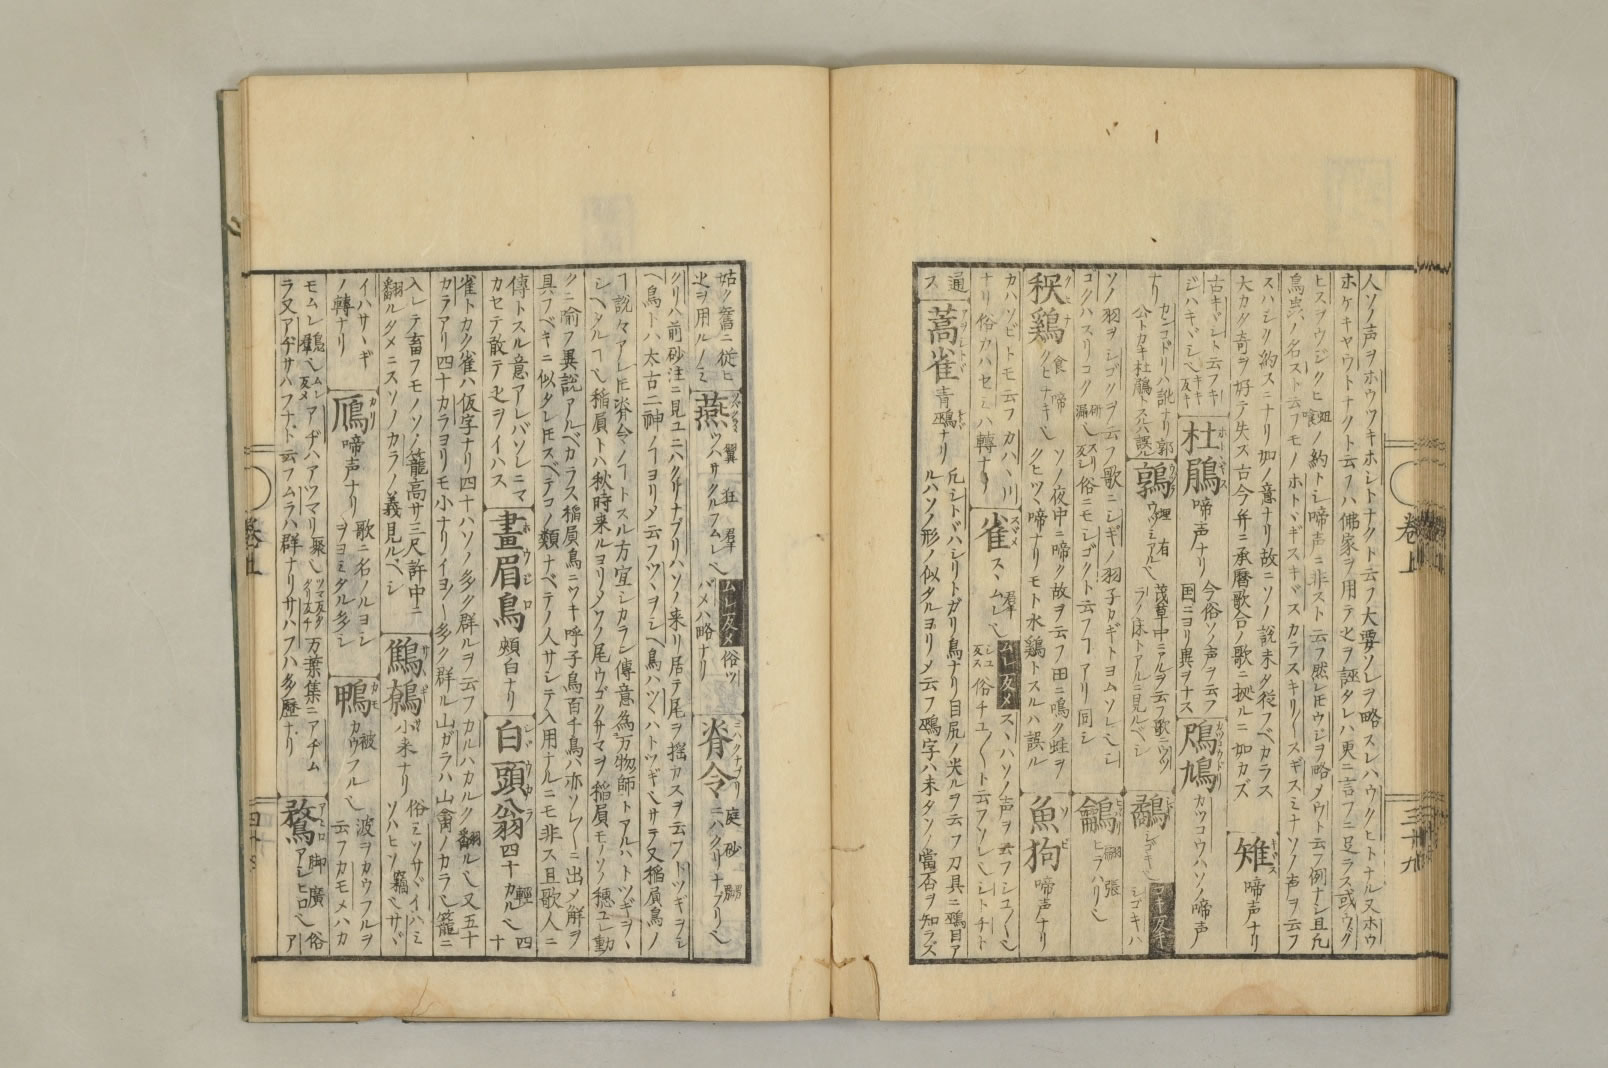 人ソノ声ヲホウツキホシトナクト云フ大要ソレヲ略スレハウクヒトナル又ホウ
ホケキヤウトナクト云フハ佛家ヲ用テ之ヲ誣タレハ更ニ言フニ足ラス或ウグ
ヒスヲウジクヒ蛆喰ノ約トシ啼声ニ非スト云フ然レ𪜈ウジヲ略メウト云フ例ナシ且凡
鳥虫ノ名スト云フモノホトヽギスキヾスカラスキリ〱スギスミナソノ声ヲ云フ
スハシクノ約スニナリ如ノ意ナリ故ニソノ説未タ從フベカラス
大カタ奇ヲ好テ失ス古今并ニ承曆歌合ノ歌ニ拠ルニ如カズ
雉 キヾス 啼声ナリ
古キヾシト云フキ
ジハキヾシ
杜鵑 ホトヽギス 啼声ナリ
今俗ソノ声ヲ云フ
国ニヨリ異ヲナス
鳲鳩 カツコウハソノ啼声
ナリ カンコドリハ訛ナリ郭
公トカキ杜鵑トスルハ誤
鶉 ウヅラ 埋有
茂草中ニアルヲ云フ歌ニウヅ
ラノ床トアルニ見ルベシ
鷸 シギ シゴキハ
キ反キ
ソノ羽ヲシゴクヲ云フ歌ニシギノ羽子カギトヨムソレ
コクハスリコク 俗ニモシゴクト云フフアリ同シ
鷭 翻張
ヒラハリ
秧鷄 クヒナ 食啼
クヒナキ
ソノ夜中ニ啼ク故ヲ云フ田ニ鳴ク蛙ヲ
クヒツヽ啼ナリモト水鷄トスルハ誤ル
魚狗 ソビ 啼声ナリ
カハソビトモ云フカハヽ川
ナリ俗カハセミハ轉ナリ
雀 スヾメ 羣
スヽムレ
ムレ反メ スヽハソノ声ヲ云フシユ〱
シユ反ス 俗チユ〱ト云フソレ シトチト
通ス
蒿雀 アヲシトヾ 青鵐ナリ
凡シトヾハシリトガリ鳥ナリ目尻ノ光ルヲ云フ刀具ニ鵐目ア
ルハソノ形ノ似タルヨリメ云フ鵐字ハ未タソノ當否ヲ知ラズ
卷上
三十九
姑ク舊ニ從ヒ
之ヲ用ルノミ
燕 ツバクラメ 翼狂羣
ツハサクルフムレ
ムレ反メ 俗ツ
バメハ略ナリ
脊令 ニハクナブリ 庭砂
ニハクリナブリ
クリハ前砂注ニ見ユニハクサナブリハソノ来リ居テ尾ヲ揺カスヲ云フトツギヲシ
ヘ鳥トハ太古二神ノフヨリメ云フツヽヲシヘ鳥ハツヽハトツギ サラ又稲屓鳥ノ
説々アレ𪜈脊令ノフトスル方宜シカラン傳意為万物師トアルハトツギヲヽ
シヘタルフ 稲屓トハ秋時来ルヨリメソノ尾ウゴクサマヲ稲屓モノソノ穗ユレ動
クニ喩フ異説アルベカラス稲屓鳥ニツキ呼子鳥百千鳥ハ亦ソレ〱ニ出メ解ヲ
具フベキニ似タレ𪜈スベテコノ類ナベテノ人サシテ入用ナルニモ非ス且歌人ニ
傳トスル意アレバソレニマ
カセテ敢テ之ヲイハス
畫眉鳥 ホウジロ 頰白ナリ
白頭翁 シヾウカラ 四十輕
カル 四十
雀トカク雀ハ仮字ナリ四十ハソノ多ク群ルヲ云フカルハカルク翻ル 又五十
カラアリ四十カラヨリモ小ナリイヨ〱多ク群ル山ガラハ山禽ノカラ 籠ニ
入レテ畜フモノソノ籠高サ三尺許中ニ
翻ルタメニスソノカラノ義見ルベシ
鷦鷯 サヾキ 小来ナリ
俗ミソサヾイハミ
ソハヒソ竊 サヾ
イハサヽギ
ノ轉ナリ
鴈 カリ 啼声ナリ
歌ニ名ノルヨシ
ヲヨミタル多シ
鴨 カモ 被
カウフル
波ヲカウフルヲ
云フカモメハカ
モムレ ムレ反メ アヂハアツマリ聚
万葉集ニアヂム
ラ又アヂサハフナト云フムラハ群ナリサハフハ多歷ナリ
鶩 アヒロ 脚廣
アシヒロ 俗ア
卷上
四十